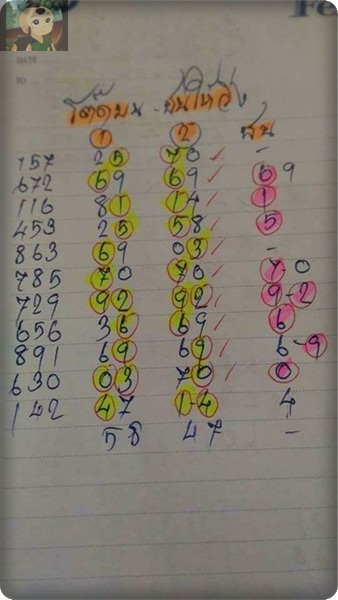 Fe
DATE
โต๊ดบน - ยืนไหว้ง ชน
1 2
157 25 70 -
672 69 69 6 9
116 81 14 1
453 25 58 5
863 69 03 -
785 70 70 7-0
729 92 92 9-2
656 36 69 6
891 69 69 6-9
630 03 70 0
142 47 1-4 4
58 47 -